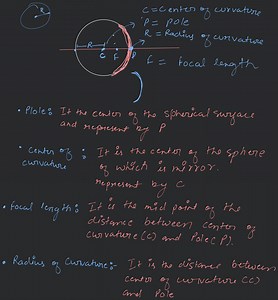 R
C = Center of curvature
P = Pole
R = Radius of curvature
f = focal length
R
C
F
P
• Plole: It the center of the spherical surface
and represent by P
• Center of : It is the center of the sphere
curvature of which is mirror.
represent by C
• focal length: It is the mid point of the
distance between center of
curvature (C) and Pole (P).
• Radius of Curvature:- It is the distance between
center of curvature (C)
and Pole